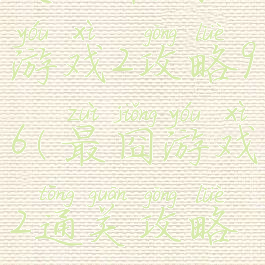 yóu xì gōng lüè
游戏2攻略9
zuì jiǒng yóu xì
6(最囧游戏
tōng guān gōng lüè
2通关攻略